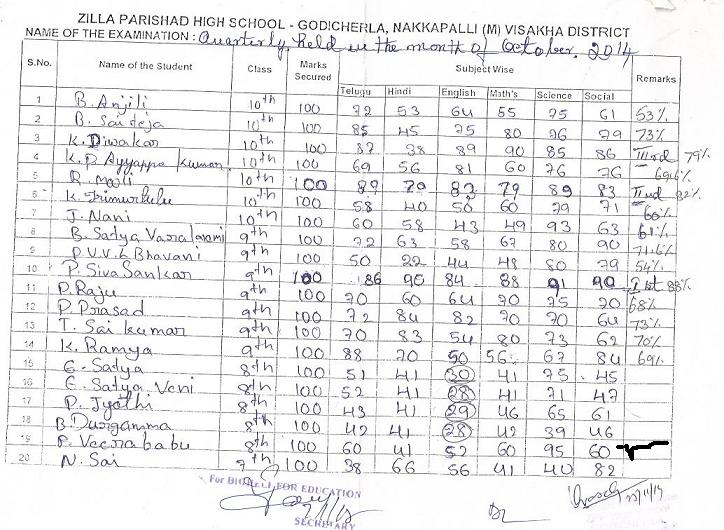 ZILLA PARISHAD HIGH SCHOOL - GODICHERLA, NAKKAPALLI (M) VISAKHA DISTRICT
NAME OF THE EXAMINATION : Quarterly held in the month of October. 2014
S.No. Name of the Student Class Marks Secured Subject Wise Remarks
Telugu Hindi English Math's Science Social
1 B. Anjili 10th 100 72 53 64 55 75 61 53%
2 B. Sai teja 10th 100 85 45 75 80 76 79 73%
3 K. Diwakar 10th 100 87 38 89 90 85 86 IIIrd 79%
4 K.D. Ayyappa Kumar 10th 100 69 56 81 60 76 76 69.6%
5 R. Mali 10th 100 87 79 82 79 89 83 IInd 82%
6 K. Trimurthulu 10th 100 58 40 50 60 79 71 60%
7 J. Nani 10th 100 60 58 43 49 93 63 61%
8 B. Satya Varalaxmi 9th 100 72 63 58 67 80 90 71.6%
9 P.V.V.L Bhavani 9th 100 50 22 44 48 80 79 54%
10 P. Siva Sankar 9th 100 86 90 84 88 91 90 Ist 88%
11 P. Raju 9th 100 70 60 64 70 75 70 68%
12 P. Prasad 9th 100 72 84 82 70 70 64 73%
13 T. Sai kumar 9th 100 70 83 54 80 73 62 70%
14 K. Ramya 9th 100 88 70 50 56 67 84 69%
15 G. Satya 8th 100 51 41 30 41 75 45
16 G. Satya Veni 8th 100 52 41 28 41 71 47
17 P. Jyothi 8th 100 43 41 29 46 65 61
18 B. Durgamma 8th 100 42 41 28 42 39 46
19 P. Veerababu 8th 100 60 41 52 60 95 60
20 N. Sai 7th 100 38 66 56 41 40 82
For FOR EDUCATION
SECRETARY